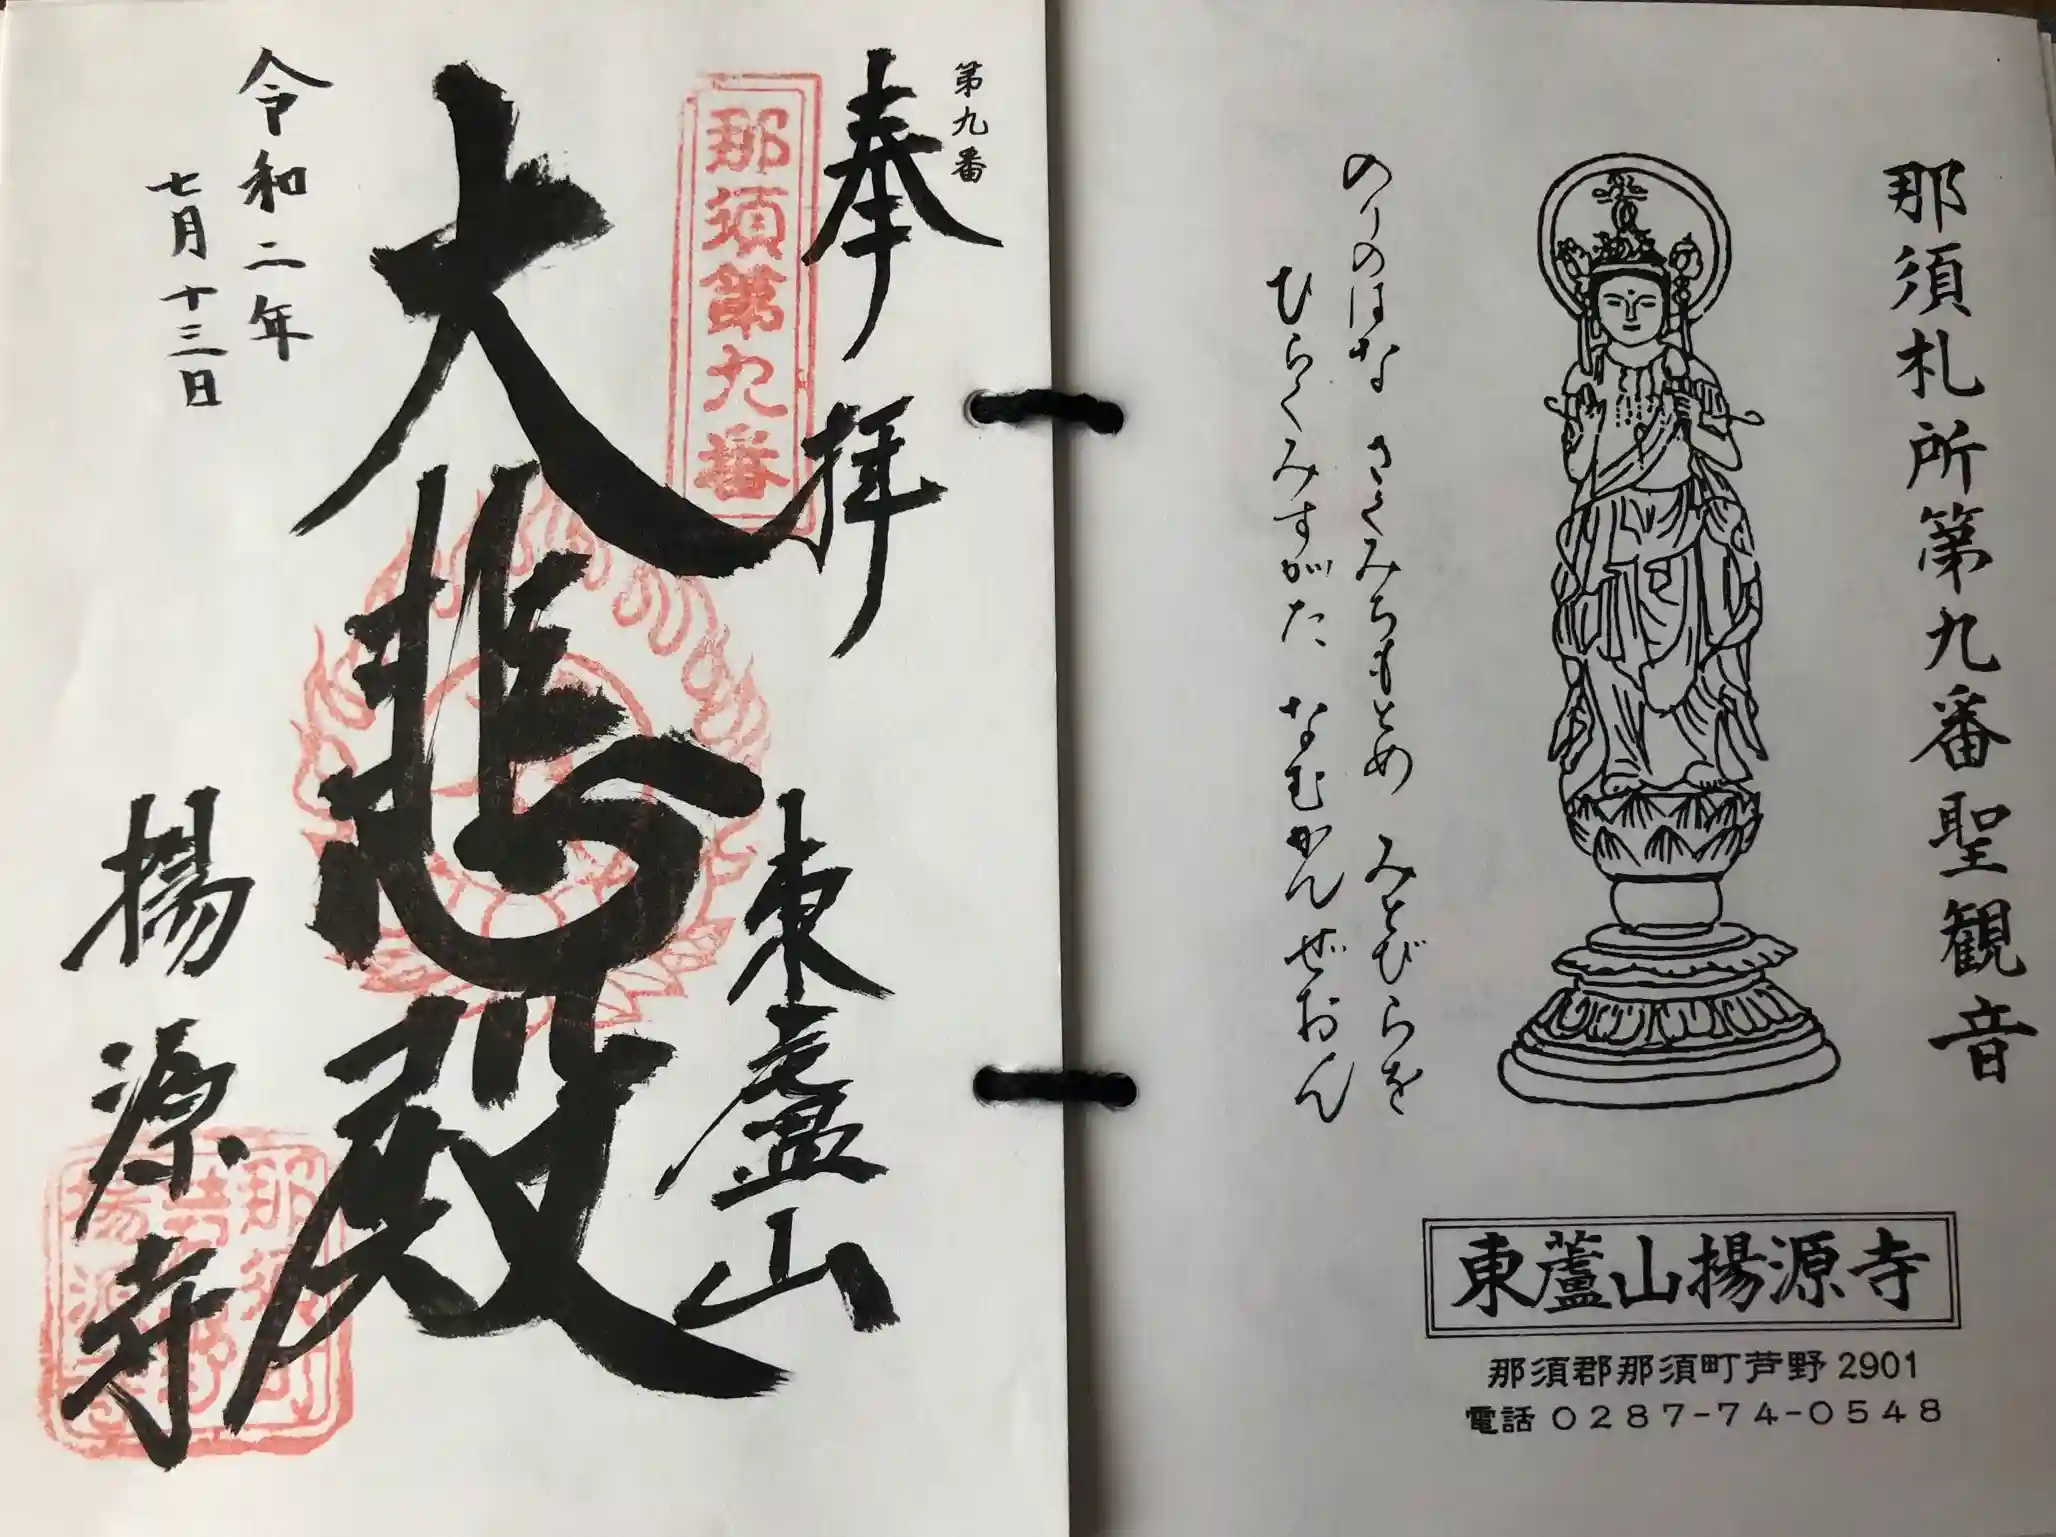 那須札所第九番聖観音
のりのはな さくみちもとめ みとびらを
ひらくみすがた なむかんぜおん
東蘆山揚源寺
那須郡那須町芦野2901
電話 0287-74-0548
第九番
奉拝
東蘆山
那須第九番
大悲殿
令和二年
七月十三日
揚源寺
那須町
芦野
揚源寺